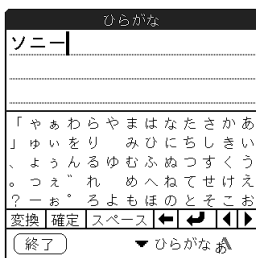 ひらがな
ソニー
「ゃぁわらやまはなたさかあ
」ゅぃをり みひにちしきい
、ょぅんるゆむふぬつすくう
。っぇ゛れ めへねてせけえ
？ーぉ゜ろよもほのとそこお
変換 確定 スペース
終了 ひらがな あ